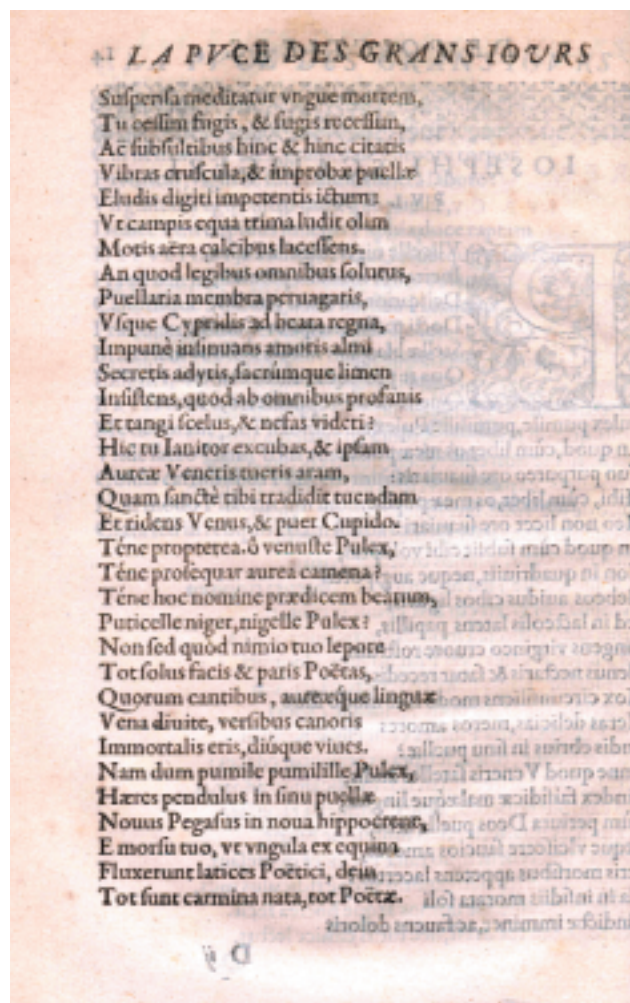 LA PVCE DES GRANS IOVRS
Suspensa meditatur vngue mortem,
Tu cessim fugis, & fugis recessim,
Ac subsultibus hinc & hinc citatis
Vibras cruscula, & improbæ puellæ
Eludis digiti impetentis ictum:
Vt campis equa trima ludit olim
Motis aëra calcibus lacessens.
An quod legibus omnibus solutus,
Puellaria membra peruagaris,
Vsque Cypridis ad beata regna,
Impunè insinuans amoris almi
Secretis adytis, sacrúmque limen
Insistens, quod ab omnibus profanis
Et tangi scelus, & nefas videri?
Hic tu Ianitor excubas, & ipsam
Aureæ Veneris tueris aram,
Quam sanctè tibi tradidit tuendam
Et ridens Venus, & puer Cupido.
Téne propterea. ô venuste Pulex,
Téne prosequar aurea camena?
Téne hoc nomine prædicem beatum,
Puticelle niger, nigelle Pulex?
Non sed quòd nimio tuo lepore
Tot solus facis & paris Poëtas,
Quorum cantibus, aureæque linguæ
Vena diuite, versibus canoris
Immortalis eris, diúque viues.
Nam dum pumile pumilille Pulex,
Hæres pendulus in sinu puellæ
Nouus Pegasus in noua hippocrene,
E morsu tuo, vt vngula ex equina
Fluxerunt latices Poëtici, dein
Tot sunt carmina nata, tot Poëtæ.